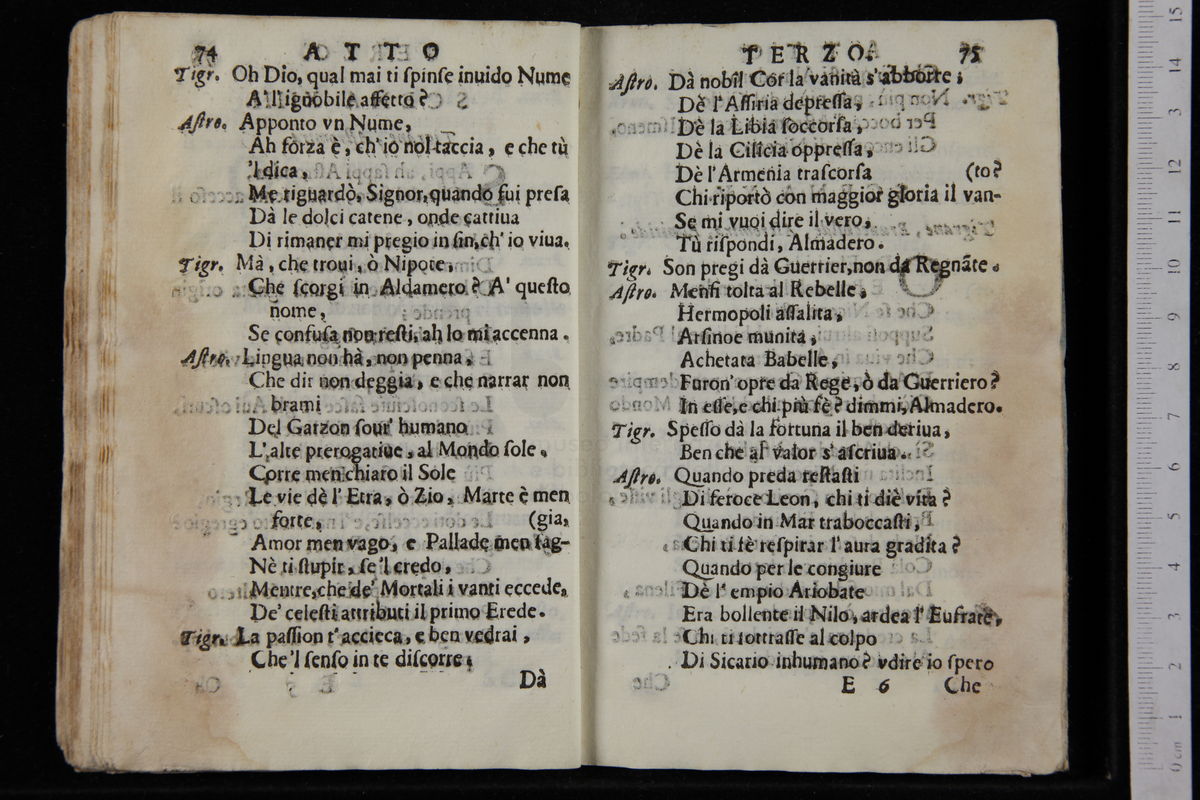 74 ATTO
Tigr. Oh Dio, qual mai ti ſpinſe inuido Nume
A'll'ignobile affetto?
Aſtro. Apponto vn Nume,
Ah forza è, ch'io nol taccia, e che tù
'l dica,
Me riguardò, Signor, quando fui preſa
Dà le dolci catene, onde cattiua
Di rimaner mi pregio in ſin, ch'io viua.
Tigr. Mà, che troui, ò Nipote,
Che ſcorgi in Aldamero? A' queſto
nome,
Se confuſa non reſti, ah lo mi accenna.
Aſtro. Lingua non hà, non penna,
Che dir non deggia, e che narrar non
brami
Del Garzon ſour' humano
L'alte prerogatiue, al Mondo ſole,
Corre men chiaro il Sole
Le vie dè l'Etra, ò Zio, Marte è men
forte, (gia,
Amor men vago, e Pallade men ſag-
Nè ti ſtupir, ſe'l credo,
Mentre, che de' Mortali i vanti eccede,
De' celeſti attributi il primo Erede.
Tigr. La paſſion t'accieca, e ben vedrai,
Che'l ſenſo in te diſcorre;
Dà
TERZO. 75
Aſtro. Dà nobil Cor la vanità s'abborre;
Dè l'Aſſiria depreſſa,
Dè la Libia ſoccorſa,
Dè la Cilicia oppreſſa,
Dè l'Armenia traſcorſa (to?
Chi riportò con maggior gloria il van-
Se mi vuoi dire il vero,
Tù riſpondi, Almadero.
Tigr. Son pregi dà Guerrier, non da Regnãte.
Aſtro. Menfi tolta al Rebelle,
Hermopoli aſſalita,
Arſinoe munita,
Achetata Babelle,
Furon' opre da Rege, ò da Guerriero?
In eſſe, e chi più fè? dimmi, Almadero.
Tigr. Speſſo dà la fortuna il ben deriua,
Ben che al valor s'aſcriua.
Aſtro. Quando preda reſtaſti
Di feroce Leon, chi ti diè vita?
Quando in Mar traboccaſti,
Chi ti fè reſpirar l'aura gradita?
Quando per le congiure
Dè l'empio Ariobate
Era bollente il Nilo, ardea l'Eufrate,
Chi ti ſottraſſe al colpo
Di Sicario inhumano? vdire io ſpero
E 6 Che